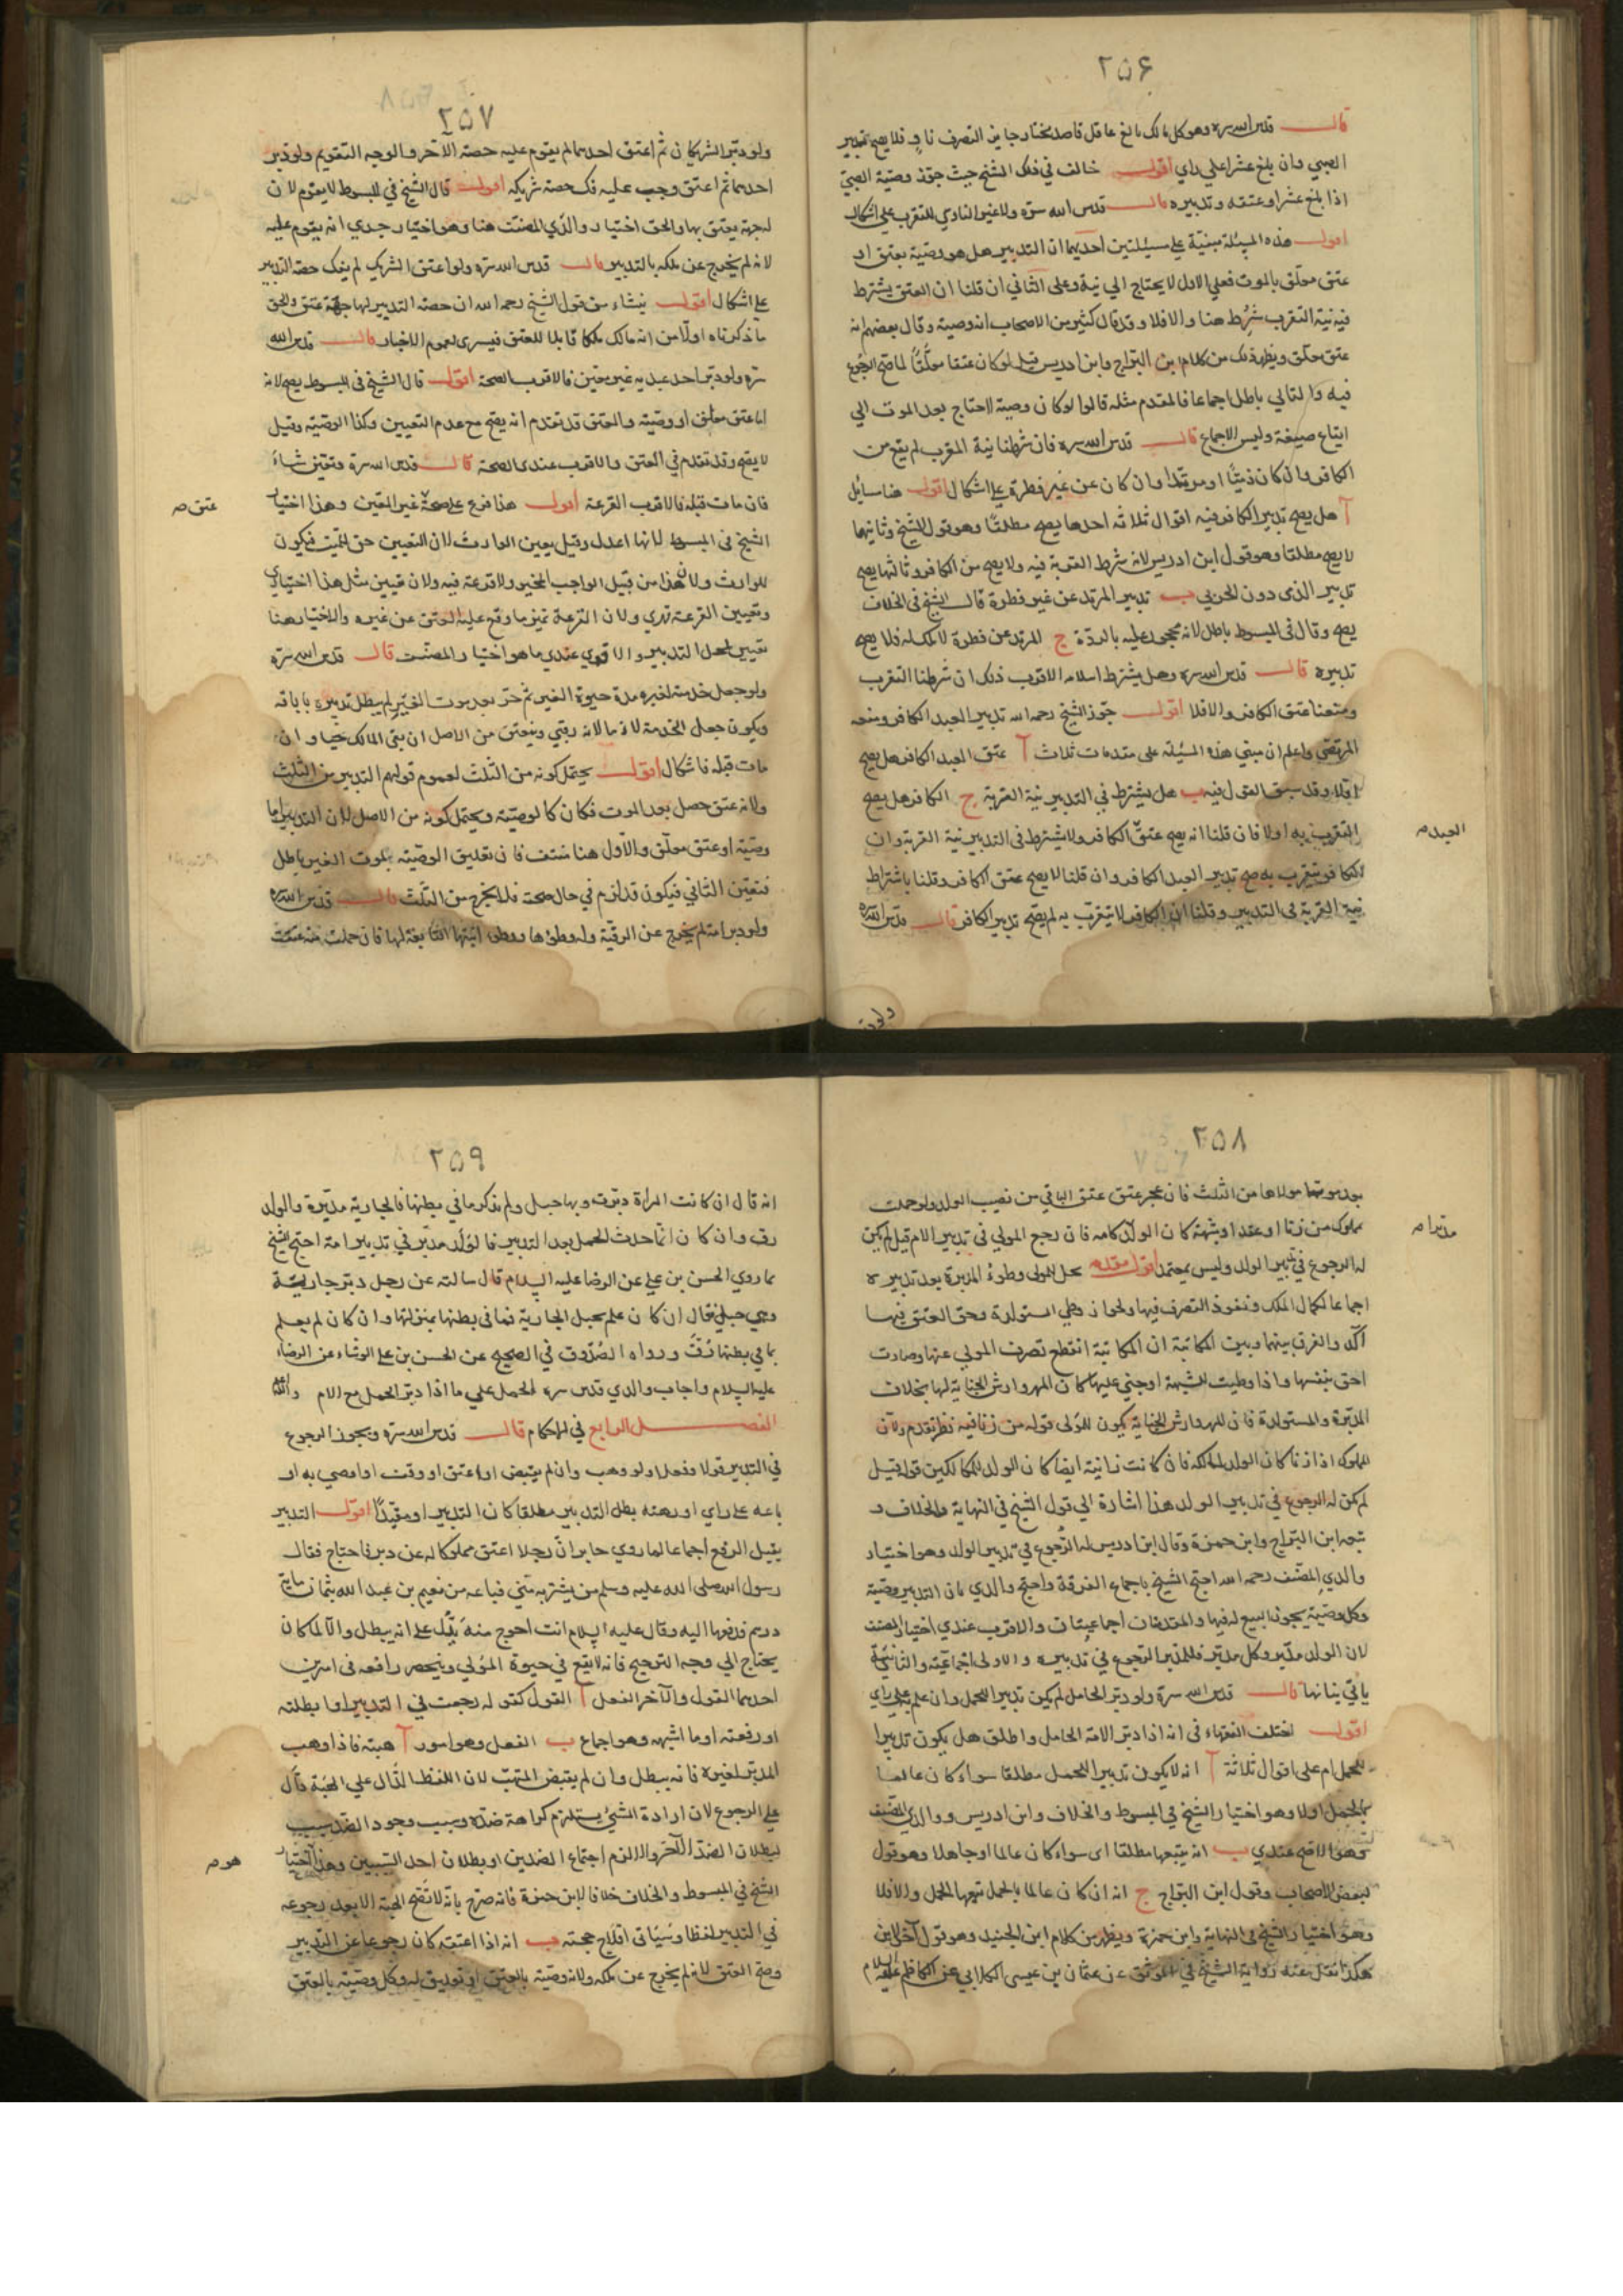 ٢٥۶
قال قدس الله سره وهو كل مالك بالغ عاقل قاصد مختار جايز التصرف نافذ فلا يصح تدبير
الصبي وان بلغ عشرا على راى اقول خالف في ذلك الشيخ حيث جوز وصية الصبي
اذا بلغ عشرا وعتقه وتدبيره قال قدس الله سره ولا غير الناوي للتقرب على اشكال
اقول هذه المسئلة مبنية على مسئلتين احديهما ان التدبير هل هو وصية بعتق او
عتق معلق بالموت فعلى الاول لا يحتاج الى نية وعلى الثاني ان قلنا ان العتق يشترط
فيه نية التقرب شرط هنا والا فلا وقد قال كثير من الاصحاب انه وصية وقال بعضهم انه
عتق معلق ويظهر ذلك من كلام ابن البراج وابن ادريس قيل لو كان عتقا معلقا لما صح الرجوع
فيه والتالي باطل اجماعا فالمقدم مثله قالوا لو كان وصية لاحتاج بعد الموت الى
ايقاع صيغة وليس الاجماع قال قدس الله سره فان شرطنا نية التقرب لم يقع من
الكافر وان كان ذميا او مرتدا وان كان عن غير فطرة على اشكال اقول هنا مسايل
آ هل يصح تدبير الكافر فيه اقوال ثلاثة احدها يصح مطلقا وهو قول الشيخ وثانيها
لا يصح مطلقا وهو قول ابن ادريس لانه شرط القربة فيه ولا يصح من الكافر وثالثها يصح
تدبير الذمى دون الحربي ب تدبير المرتد عن غير فطرة قال الشيخ في الخلاف
يصح وقال في المبسوط باطل لانه محجور عليه بالردة ج المرتد عن فطرة لا ملك له فلا يصح
تدبيره قال قدس الله سره وهل يشترط اسلامه الاقرب ذلك ان شرطنا التقرب
ومنعنا عتق الكافر والا فلا اقول جوز الشيخ رحمه الله تدبير العبد الكافر ومنعه
المرتضى واعلم ان مبنى هذه المسئلة على مقدمات ثلاث آ عتق العبد الكافر هل يصح
او لا وقد سبق القول فيه ب هل يشترط في التدبير نية القربة ج الكافر هل يصح
التقرب به او لا فان قلنا انه يصح عتق الكافر ولا يشترط في التدبير نية القربة وان
العبد صح
الكافر يتقرب به صح تدبير العبد الكافر وان قلنا لا يصح عتق الكافر وقلنا باشتراط
نية القربة في التدبير وقلنا ان الكافر لا يتقرب به لم يصح تدبير الكافر قال قدس الله سره
٢٥٧
ولو دبر الشريكان ثم اعتق احدهما لم يقوم عليه حصة الآخر والوجه التقويم ولو دبر
احدهما ثم اعتق وجب عليه فك حصة شريكه اقول قال الشيخ في المبسوط لا يقوم لان
له جهة يعتق بها والحق اختيار والدي المصنف هنا وهو اختيار جدي انه يقوم عليه
لانه لم يخرج عن ملكه بالتدبير قال قدس الله سره ولو اعتق الشريك لم يفك حصة التدبير
على اشكال اقول ينشاء من قول الشيخ رحمه الله ان حصة التدبير لها جهة عتق والحق
ما ذكرناه اولا من انه مالك ملكا قابلا للعتق فيسرى لعموم الاخبار قال قدس الله
سره ولو دبر احد عبديه غير معين فالاقرب الصحة اقول قال الشيخ في المبسوط يصح لانه
اما عتق معلق او وصية والعتق قد تقدم انه يصح مع عدم التعيين وكذا الوصية وقيل
لا يصح وقد تقدم في العتق والاقرب عندى الصحة قال قدس الله سره وتعين شاء
فان مات قبله فالاقرب القرعة اقول هذا فرع على صحة غير المعين وهذا اختيار
عتق صح
الشيخ في المبسوط لانها اعدل وقيل يعين الوارث لان التعيين حق للميت فيكون
للوارث ولان هذا من قبيل الواجب المخير ولا قرعة فيه ولان تعيين مثل هذا اختياري
وتعيين القرعة قهري ولان القرعة تميز ما وقع عليه العتق عن غيره والاختيار هنا
تعيين لمحل التدبير والاقوى عندي ما هو اختيار المصنف قال قدس الله سره
ولو جعل خدمته لغيره مدة حيوة الغير ثم حر بعد موت الغير لم يبطل تدبيره باباقه
ويكون جعل الخدمة لازما لانه رقبى ويعتق من الاصل ان بقى المالك حيا وان
مات قبله فاشكال اقول يحتمل كونه من الثلث لعموم قولهم التدبير من الثلث
ولانه عتق حصل بعد الموت فكان كالوصية ويحتمل كونه من الاصل لان التدبير اما
وصية او عتق معلق والاول هنا منتف فان تعليق الوصية بموت الغير باطل
فتعين الثاني فيكون قد لزم في حال صحته فلا يخرج من الثلث قال قدس الله سره
ولو دبر امة لم يخرج عن الرقية وله وطئها ووطى ابنتها التابعة لها فان حملت منه عتقت
٢٥٨
بعد موت مولاها من الثلث فان عجز عتق عتق الباقي من نصيب الولد ولو حملت
مملوك من زنا او عقد او شبهة كان الولد كامه فان رجع المولى في تدبير الام قيل لم يكن
مدبرا صح
له الرجوع في تدبير الولد وليس بمعتمد اقول مقدمه يحل للمولى وطوء المدبرة بعد تدبيره
اجماعا لكمال الملك ونفوذ التصرف فيها ولجواز وطى المستولدة وحق العتق فيها
آكد والفرق بينهما وبين المكاتبة ان المكاتبة انقطع تصرف المولى عنها وصارت
احق بنفسها واذا وطيت للشبهة او جني عليها كان المهر وارش الجناية لها بخلاف
المدبرة والمستولدة فان المهر وارش الجناية يكون للمولى قوله من زنا فيه نظر تقدم ولان
المملوك اذا زنا كان الولد لمالكه فان كانت زانية ايضا كان الولد للمالكين قوله قيل
لم يكن له الرجوع في تدبير الولد هذا اشارة الى قول الشيخ في النهاية والخلاف و
تبعه ابن البراج وابن حمزة وقال ابن ادريس له الرجوع في تدبير الولد وهو اختيار
والدي المصنف رحمه الله احتج الشيخ باجماع الفرقة واحتج والدي بان التدبير وصية
وكل وصية يجوز البيع له فيها والمقدمتان اجماعيتان والاقرب عندي اختيار المصنف
لان الولد مدبر وكل مدبر فللمدبر الرجوع في تدبيره والاولى اجماعية والثانية
ياتي بيانها قال قدس الله سره ولو دبر الحامل لم يكن تدبيرا للحمل وان علم به على راى
اقول اختلف الفقهاء في انه اذا دبر الامة الحامل واطلق هل يكون تدبيرا
للحمل ام على اقوال ثلاثة آ انه لا يكون تدبيرا للحمل مطلقا سواء كان عالما
بالحمل او لا وهو اختيار الشيخ في المبسوط والخلاف وابن ادريس ووالدى المصنف
وهو الاصح عندي ب انه يتبعها مطلقا اى سواء كان عالما او جاهلا وهو قول
لبعض الاصحاب وقول ابن البراج ج انه ان كان عالما بالحمل تبعها الحمل والا فلا
وهو اختيار الشيخ في النهاية وابن حمزة ويظهر من كلام ابن الجنيد وهو قول آخر لابن
هكذا نقل عنه رواية الشيخ في الموثق عن عثمان بن عيسى الكلابي عن الكاظم عليه السلام
٢٥٩
انه قال ان كانت المراة دبرت وبها حبل ولم يذكر ما في بطنها فالجارية مدبرة والولد
رق وان كان انما حدث الحمل بعد التدبير فالولد مدبر في تدبير امه احتج الشيخ
بما روى الحسن بن على عن الرضا عليه السلام قال سالته عن رجل دبر جارية
وهي حبلى فقال ان كان علم بحبل الجارية فما في بطنها بمنزلتها وان كان لم يعلم
بما في بطنها رق ورواه الصدوق في الصحيح عن الحسن بن على الوشاء عن الرضا
عليه السلام واجاب والدي قدس سره بالحمل على ما اذا دبر الحمل مع الام والله
الفصل الرابع في الاحكام قال قدس الله سره ويجوز الرجوع
في التدبير قولا وفعلا ولو وهب وان لم يقبض او اعتق او وقف او اوصى به او
باعه على راي او رهنه بطل التدبير مطلقا كان التدبير او مقيدا اقول التدبير
يقبل الرفع اجماعا لما روى جابر ان رجلا اعتق مملوكا له عن دبر فاحتاج فقال
رسول الله صلى الله عليه وسلم من يشتريه مني فباعه من نعيم بن عبد الله بثمان مائة
درهم فدفعها اليه وقال عليه السلام انت احوج منه فدل على انه يبطل والا لما كان
يحتاج الى وجه الترجيح فانه لا يقع في حيوة المولى وينحصر رافعه في امرين
احدهما القول والآخر الفعل آ القول كقوله رجعت في التدبير او ابطلته
او رفعته او ما اشبهه وهو اجماع ب الفعل وهو امور آ هبته فاذا وهب
المدبر لغيره فانه يبطل وان لم يقبض المتهب لان اللفظ الدال على الهبة دال
على الرجوع لان ارادة الشئ يستلزم كراهة ضده وسبب وجود الضد سبب
لبطلان الضد الآخر والا لزم اجتماع الضدين او بطلان احد السببين وهذا اختيار
هو صح
الشيخ في المبسوط والخلاف خلافا لابن حمزة فانه صرح بانه لا تصح الهبة الا بعد رجوعه
في التدبير لفظا وسياتى حجته ب انه اذا اعتقه كان رجوعا عن التدبير
وصح العتق لانه لم يخرج عن ملكه ولانه وصية بالعتق او تعليق له وكل وصية بالعتق